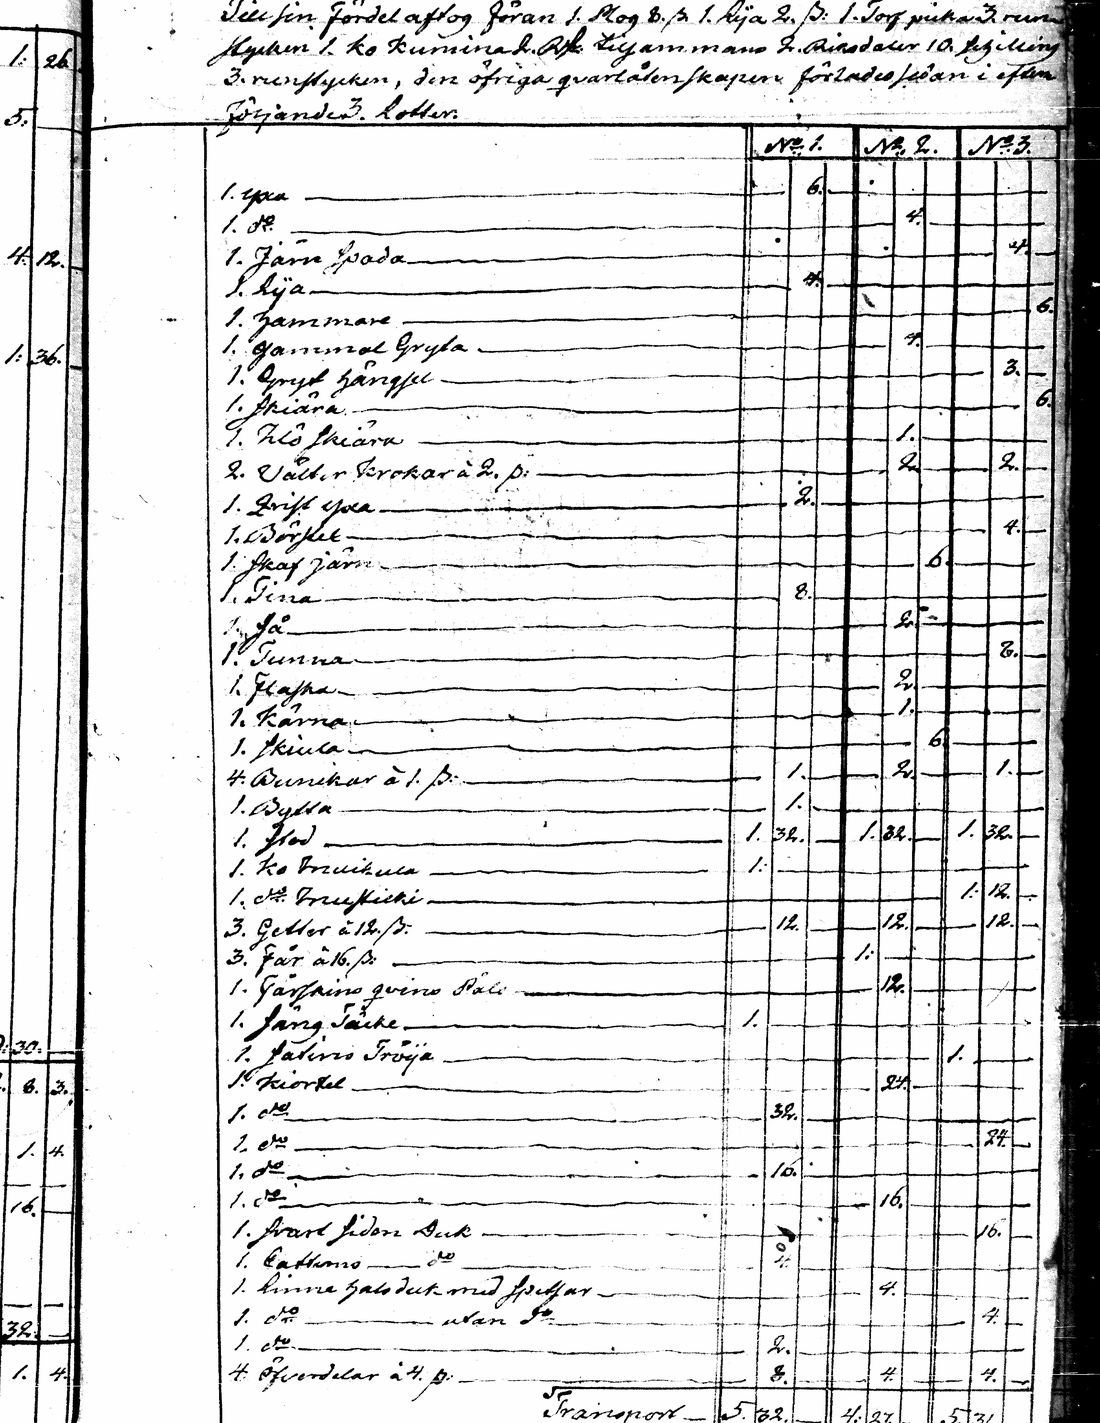 Till sin fördel aftog Föran 1. Plog 8. ß 1. Lija 2. ß: 1. Torf picka 3. run
stycken 1. Ko Kumina 2. Rd. tillsammans 2. Riksdaler 10. schilling
3. runstycken, den öfriga qvarlåtenskapen förlades sedan i efter
följande 3. Lotter.
No. 1. No. 2. No. 3.
1. yxa 6.
1. do 4.
1. Järn spada 4.
1. Lija 4.
1. hammare 6.
1. gammal Gryta 4.
1. Gryt hängsel 3.
1. skiära 6.
1. Klö skiära 1.
2. Vålter Krokar à 2. ß: 2. 2.
1. yxa 2.
1. Börstel 4.
1. skaf järn 6.
1. Tina 8.
1. så 2.
1. Tunna 8.
1. Flaska 2.
1. Kärna 1.
1. skiula 6.
4. Bunikar à 1. ß: 1. 2. 1.
1. Bytta 1.
1. stod 1. 32. 1. 32. 1. 32.
1. Ko 1:
1. do 1. 12.
3. Getter à 12. ß: 12. 12. 12.
3. Får à 16. ß: 1:
1. Fårskins qvins Päls 12.
1. säng Täcke 1.
1. satins Tröija 1.
1. Kiortel 24.
1. do 32.
1. do 24.
1. do 16.
1. do 16.
1. svart siden Duk 16.
1. Cattuns do 4.
1. Linne halsduk med spetsar 4.
1. do utan do 4.
1. do 2.
4. öfverdelar à 4. ß: 8. 4. 4.
Transport 5. 32. 4. 27. 5. 31.
1: 26.
5.
4. 12.
1: 36.
30.
8. 3.
1. 4.
16.
32.
1. 4.